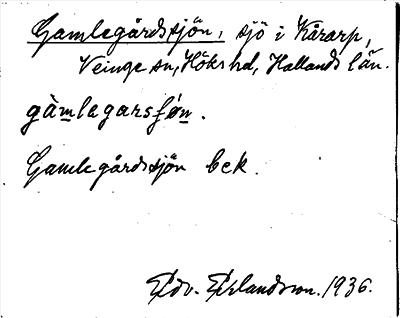 Gamlegårdssjön, sjö i Kårarp,
Veinge sn, Höks hd, Hallands län.
gàmlegarsʃøn.
Gamlegårdssjön bek.
Edv. Erlandsson. 1936.